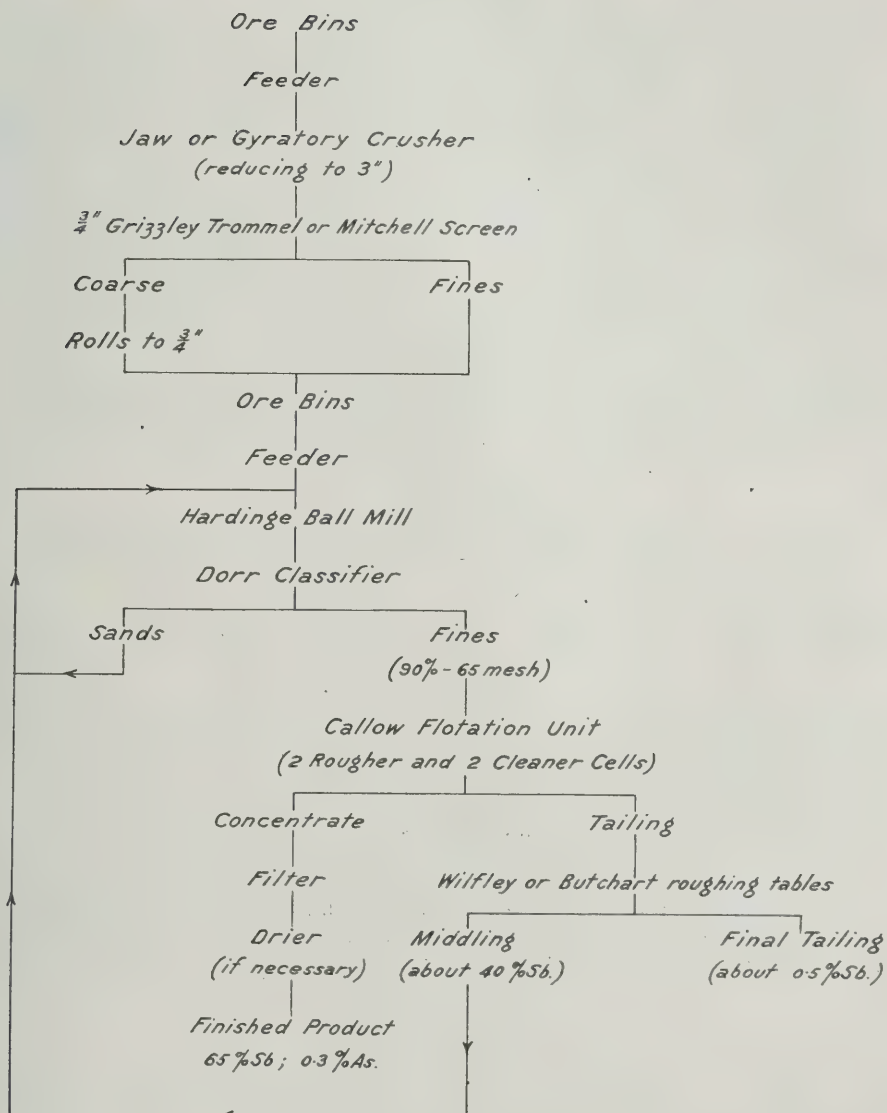 Ore Bins
Feeder
Jaw or Gyratory Crusher
(reducing to 3")
¾" Grizzley Trommel or Mitchell Screen
Coarse
Fines
Rolls to ¾"
Ore Bins
Feeder
Hardinge Ball Mill
Dorr Classifier
Sands
Fines
(90% - 65 mesh)
Callow Flotation Unit
(2 Rougher and 2 Cleaner Cells)
Concentrate
Tailing
Filter
Wilfley or Butchart roughing tables
Drier
(if necessary)
Middling
(about 40 % Sb.)
Final Tailing
(about 0·5 % Sb.)
Finished Product
65 % Sb ; 0·3 % As.